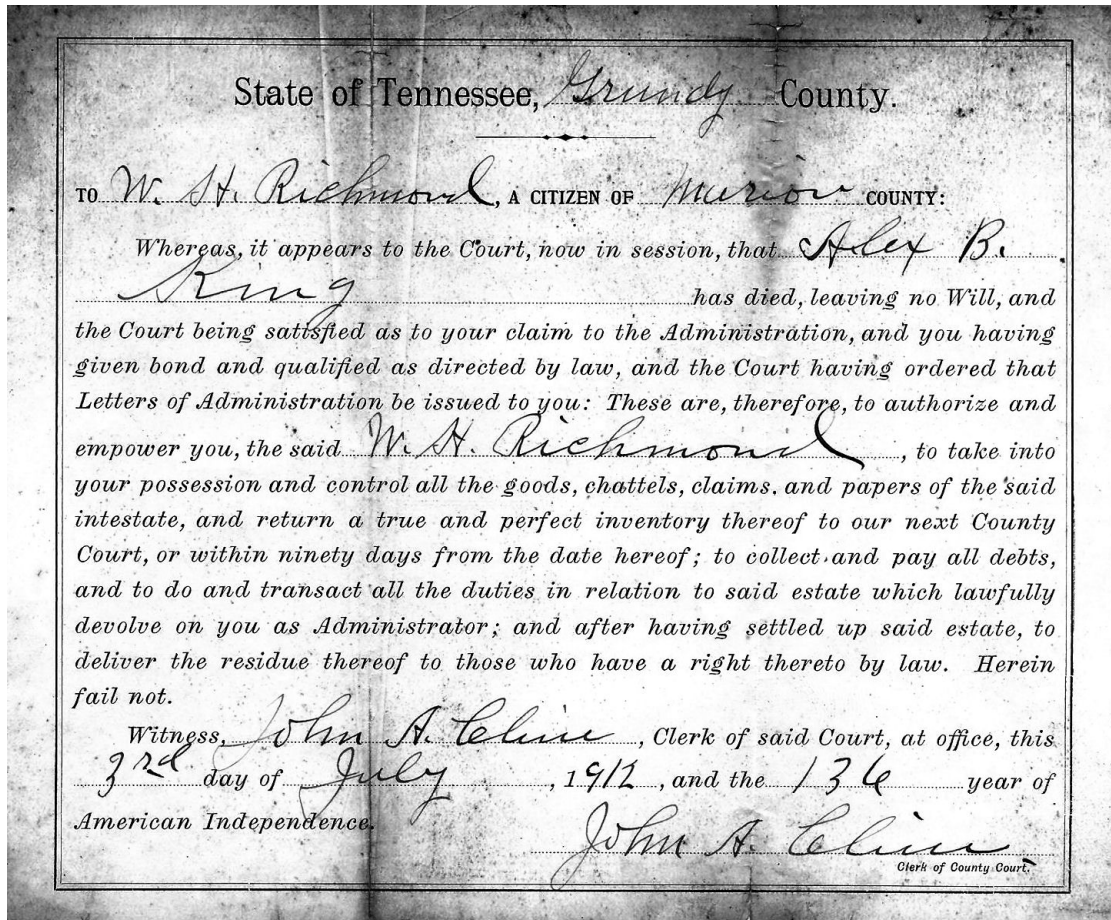 State of Tennessee, Grundy County.
TO W. H. Richmond, A CITIZEN OF Marion COUNTY:
Whereas, it appears to the Court, now in session, that Alex B.
King has died, leaving no Will, and
the Court being satisfied as to your claim to the Administration, and you having
given bond and qualified as directed by law, and the Court having ordered that
Letters of Administration be issued to you: These are, therefore, to authorize and
empower you, the said W. H. Richmond, to take into
your possession and control all the goods, chattels, claims, and papers of the said
intestate, and return a true and perfect inventory thereof to our next County
Court, or within ninety days from the date hereof; to collect and pay all debts,
and to do and transact all the duties in relation to said estate which lawfully
devolve on you as Administrator; and after having settled up said estate, to
deliver the residue thereof to those who have a right thereto by law. Herein
fail not.
Witness, John A. Cline, Clerk of said Court, at office, this
3rd day of July, 1912, and the 136 year of
American Independence.
John A. Cline
Clerk of County Court.